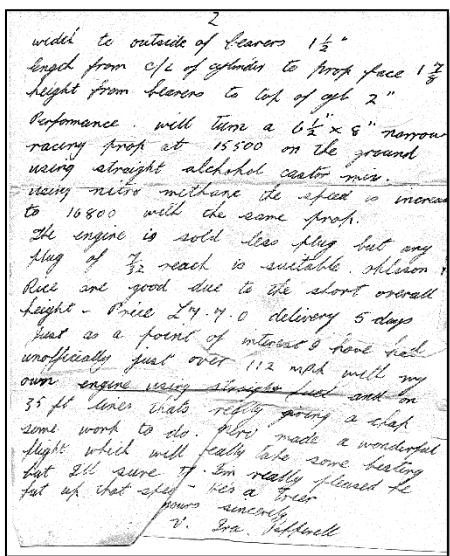 2
width to outside of bearers 1 1/2"
length from c/L of cylinder to prop face 1 7/8
height from bearers to top of cyl 2"
Performance. will turn a 6 1/2 x 8" narrow
racing prop at 15500 on the ground
using straight alchohol castor mix.
using nitro methane the speed is increas
to 16800 with the same prop.
The engine is sold less plug but any
plug of 7/32 reach is suitable. Ohlsson &
Rice are good due to the short overall
height - Price £7.7.0 delivery 5 days
Just as a point of interest I have had
unofficially just over 112 mph with my
own engine using straight fuel and on
35 ft lines thats really going a chap
some work to do. made a wonderful
flight which will really take some beating
but I'll sure try. I'm really pleased he
put up that - He's a
yours sincerely
V. Ira.